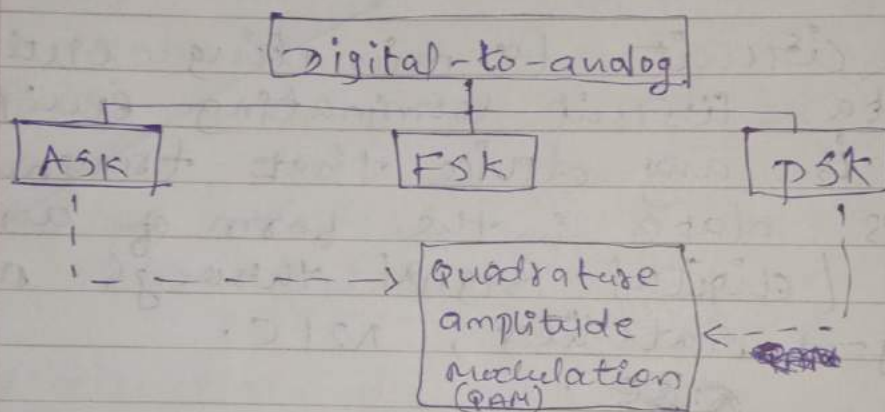 Digital-to-analog
ASK FSK PSK
Quadrature
amplitude
modulation
(QAM)